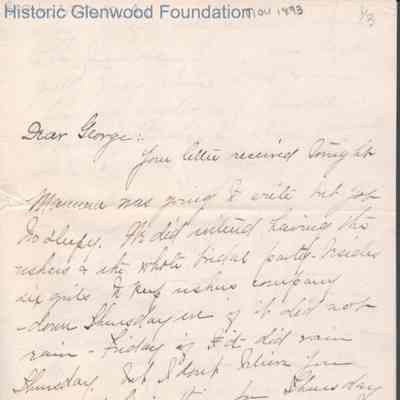 Historic Glenwood Foundation
Nov 1893
1/3
Dear George:
Your letter received tonight
Mamma was going to write but got
too sleepy. We did intend having the
ushers & the whole bridal party besides
six girls to keep ushers company
down Thursday eve if it did not
rain - Friday if it did rain
Thursday. But I don't believe
for Thursday